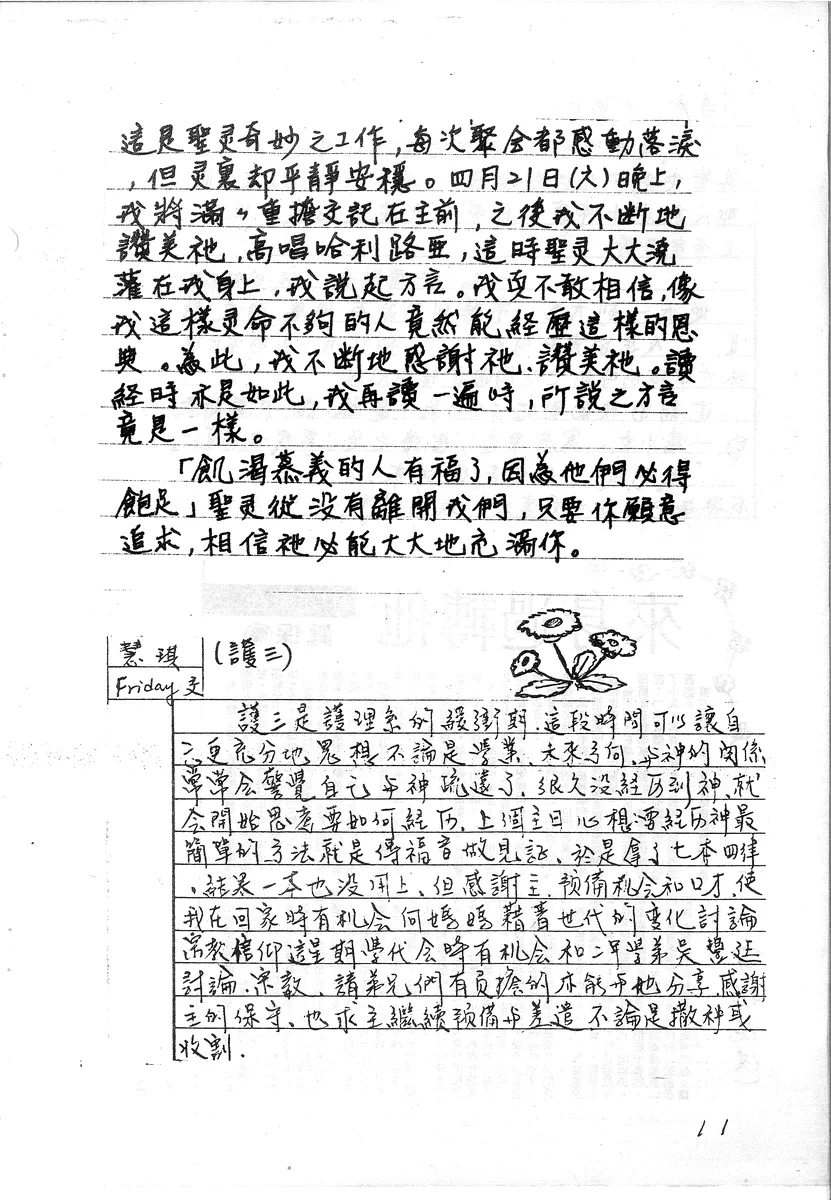 這是聖灵奇妙之工作,每次聚会都感動落淚
,但灵裏却平靜安穩。四月21日(六)晚上,
我將滿々重擔交託在主前,之後我不断地
讚美祂,高唱哈利路亜,這時聖灵大大澆
灌在我身上,我說起方言。我更不敢相信,像
我這樣灵命不夠的人竟然能経歷這樣的恩
典。為此,我不断地感謝祂、讚美祂。讀
経時亦是如此,我再讀一遍時,所說之方言
竟是一樣。
「飢渴慕義的人有福了,因為他們必得
飽足」聖灵從没有離開我們,只要你願意
追求,相信祂必能大大地充滿你。
慧琪 (護三)
Friday 交
護三是護理系的緩衝期.這段時間可以讓自
己更充分地思想不論是學業、未來方向、与神的関係
常常会驚覺自己与神疏遠了、很久没経历到神、就
会開始思意要如何経历.上個主日心想要経历神最
簡單的方法就是傳福音做見証、於是拿了七本四律
,結果一本也没用上、但感謝主.預備机会和口才,使
我在回家時有机会向媽媽藉着世代的变化討論
宗教信仰這星期學代会時有机会和二年學弟吳
討論.宗教、請弟兄們有負擔的亦能与他分享.感謝
主的保守、也求主繼續預備与差遣不論是撒种或
收割.
11